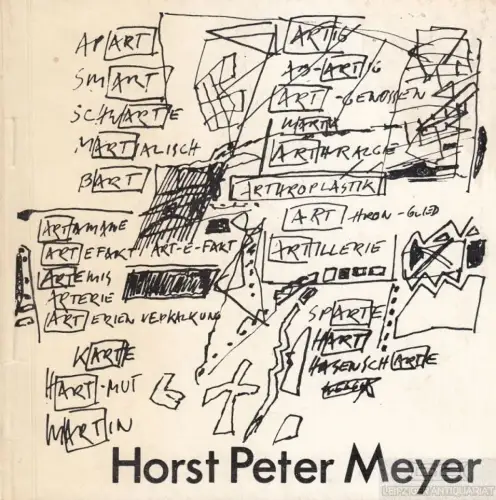 APART
SMART
SCHWARTE
MARTIALISCH
BART
ARTAMANE
ARTEFAKT/ART-E-FAKT
ARTEMIS
ARTERIE
ARTERIENVERKALKUNG
KARTE
HART-MUT
MARTIN
ARTIG
AB-ARTIG
ART-GENOSSEN
ARTHRALGIE
ARTHROPLASTIK
ART HRON-GLIED
ARTILLERIE
SPARTE
HART
HASENSCHARTE
Horst Peter Meyer
LEIPZIGER ANTIQUARIAT